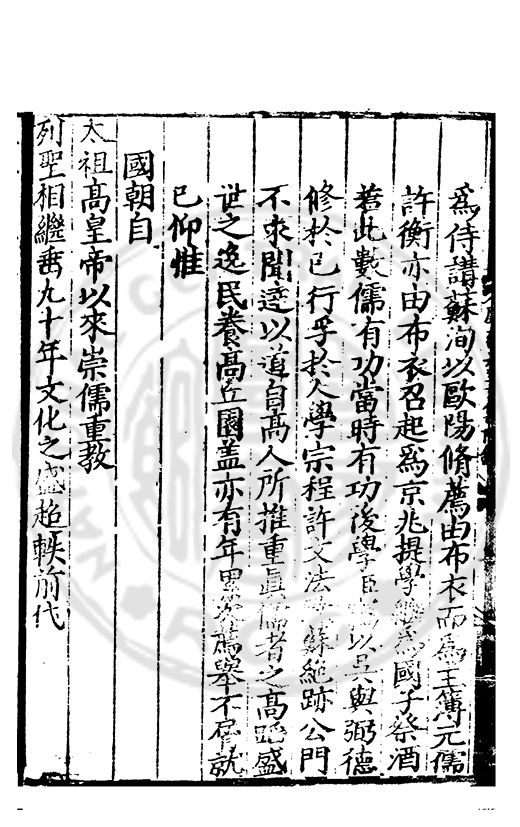 為侍講蘇洵以歐陽脩薦由布衣而為主簿元儒
許衡亦由布衣召起為京兆提學繼為國子祭酒
若此數儒有功當時有功後學臣以吳與弼德
修於己行孚於人學宗程許文法蘇絕跡公門
不求聞達以道自高人所推重真儒者之高蹈盛
世之逸民養高丘園盖亦有年累蒙薦舉不屑就
已仰惟
國朝自
太祖高皇帝以來崇儒重教
列聖相繼垂九十年文化之盛超軼前代